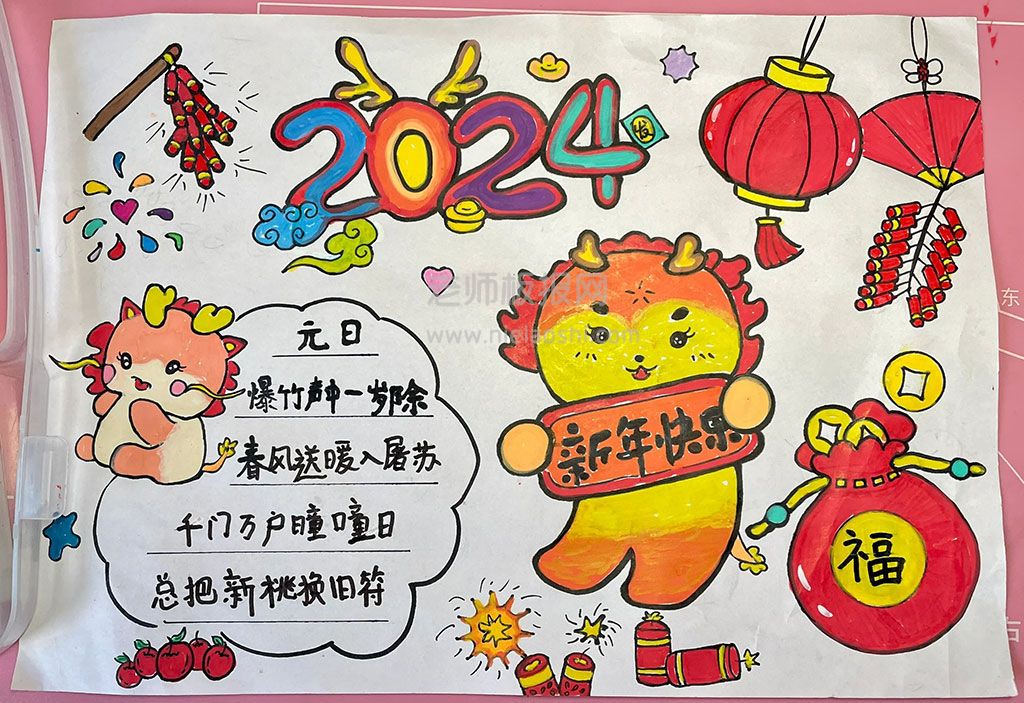 2024
发
老师板报网
www.nielaoshi.com
元日
爆竹声中一岁除
春风送暖入屠苏
千门万户曈曈日
总把新桃换旧符
新年快乐
福
东